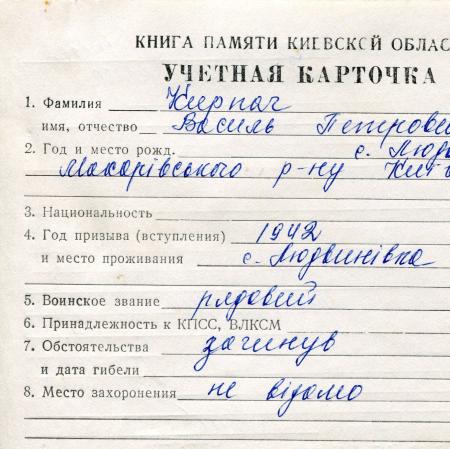 КНИГА ПАМЯТИ КИЕВСКОЙ ОБЛАС
УЧЕТНАЯ КАРТОЧКА
1. Фамилия Кирпач
имя, отчество Василь Петрови
2. Год и место рожд. с. Людв
Макарівського р-ну Київ
3. Национальность
4. Год призыва (вступления) 1942
и место проживания с. Людвинівка
5. Воинское звание рядовий
6. Принадлежность к КПСС, ВЛКСМ
7. Обстоятельства загинув
и дата гибели
8. Место захоронения не відомо